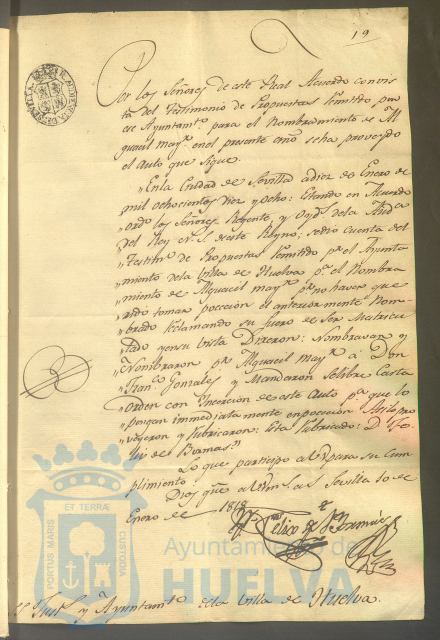 19
Por los Señores de este Real Acuerdo con vis
ta del Testimonio de Propuestas remitido por
ese Ayuntamto. para el Nombramiento de Al
guacil mayr. en el presente año se ha proveydo
el Auto que sigue.
"En la Ciudad de Sevilla a diez de Enero de
"mil ochocientos diez y ocho: Estando en Acuerdo
"ordo. los Señores Regente, y Oyds. de la Audca
"del Rey ntro. S. de este Reyno: se dio cuenta del
"Testimo. de Propuestas remitido pr. el Ayunta
"miento de la Villa de Huelva pa. el Nombra
"miento de Alguacil mayr. pr. no haver que
"rido tomar poceción el anteriormente Nom
"brado reclamando su fuero de ser Matricu
"lado y en su vista Dixeron: Nombravan y
"Nombraron pr. Alguacil mayr. á Don
"Franco. Gonzales y Mandaron se libre Carta
"orden con Incerción de este Auto pa. que lo
"pongan immediatamente en poceción Asi lo pro
"veyeron y rubricaron: Esta rubricado: D.
de Bormas."
Lo que participo a V para su Cum
plimiento.
Dios gue. a V ms. as. Sevilla 10 de
Enero de 1818
Felix de Bormas
Sres. Justa. y Ayuntamto. de la Villa de Huelva.
PORTUS MARIS ET TERRAE CUSTODIA
Ayuntamiento de
HUELVA